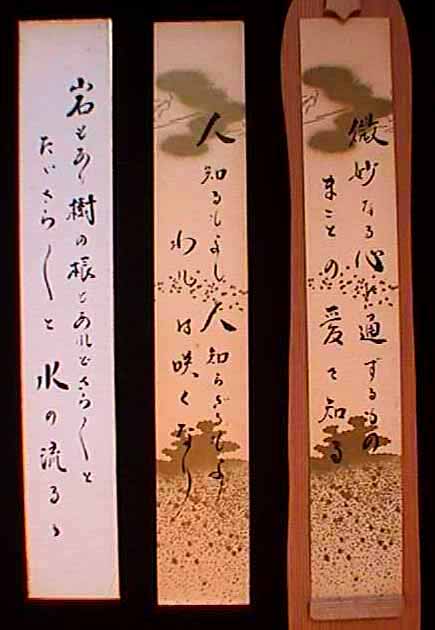 微妙なる心に通ずるもの
まことの愛を知る
人知るもよし人知らざるもよし
われは咲くなり
岩もあり樹の根もあれどさら〱と
たゞさら〱と水の流るゝ